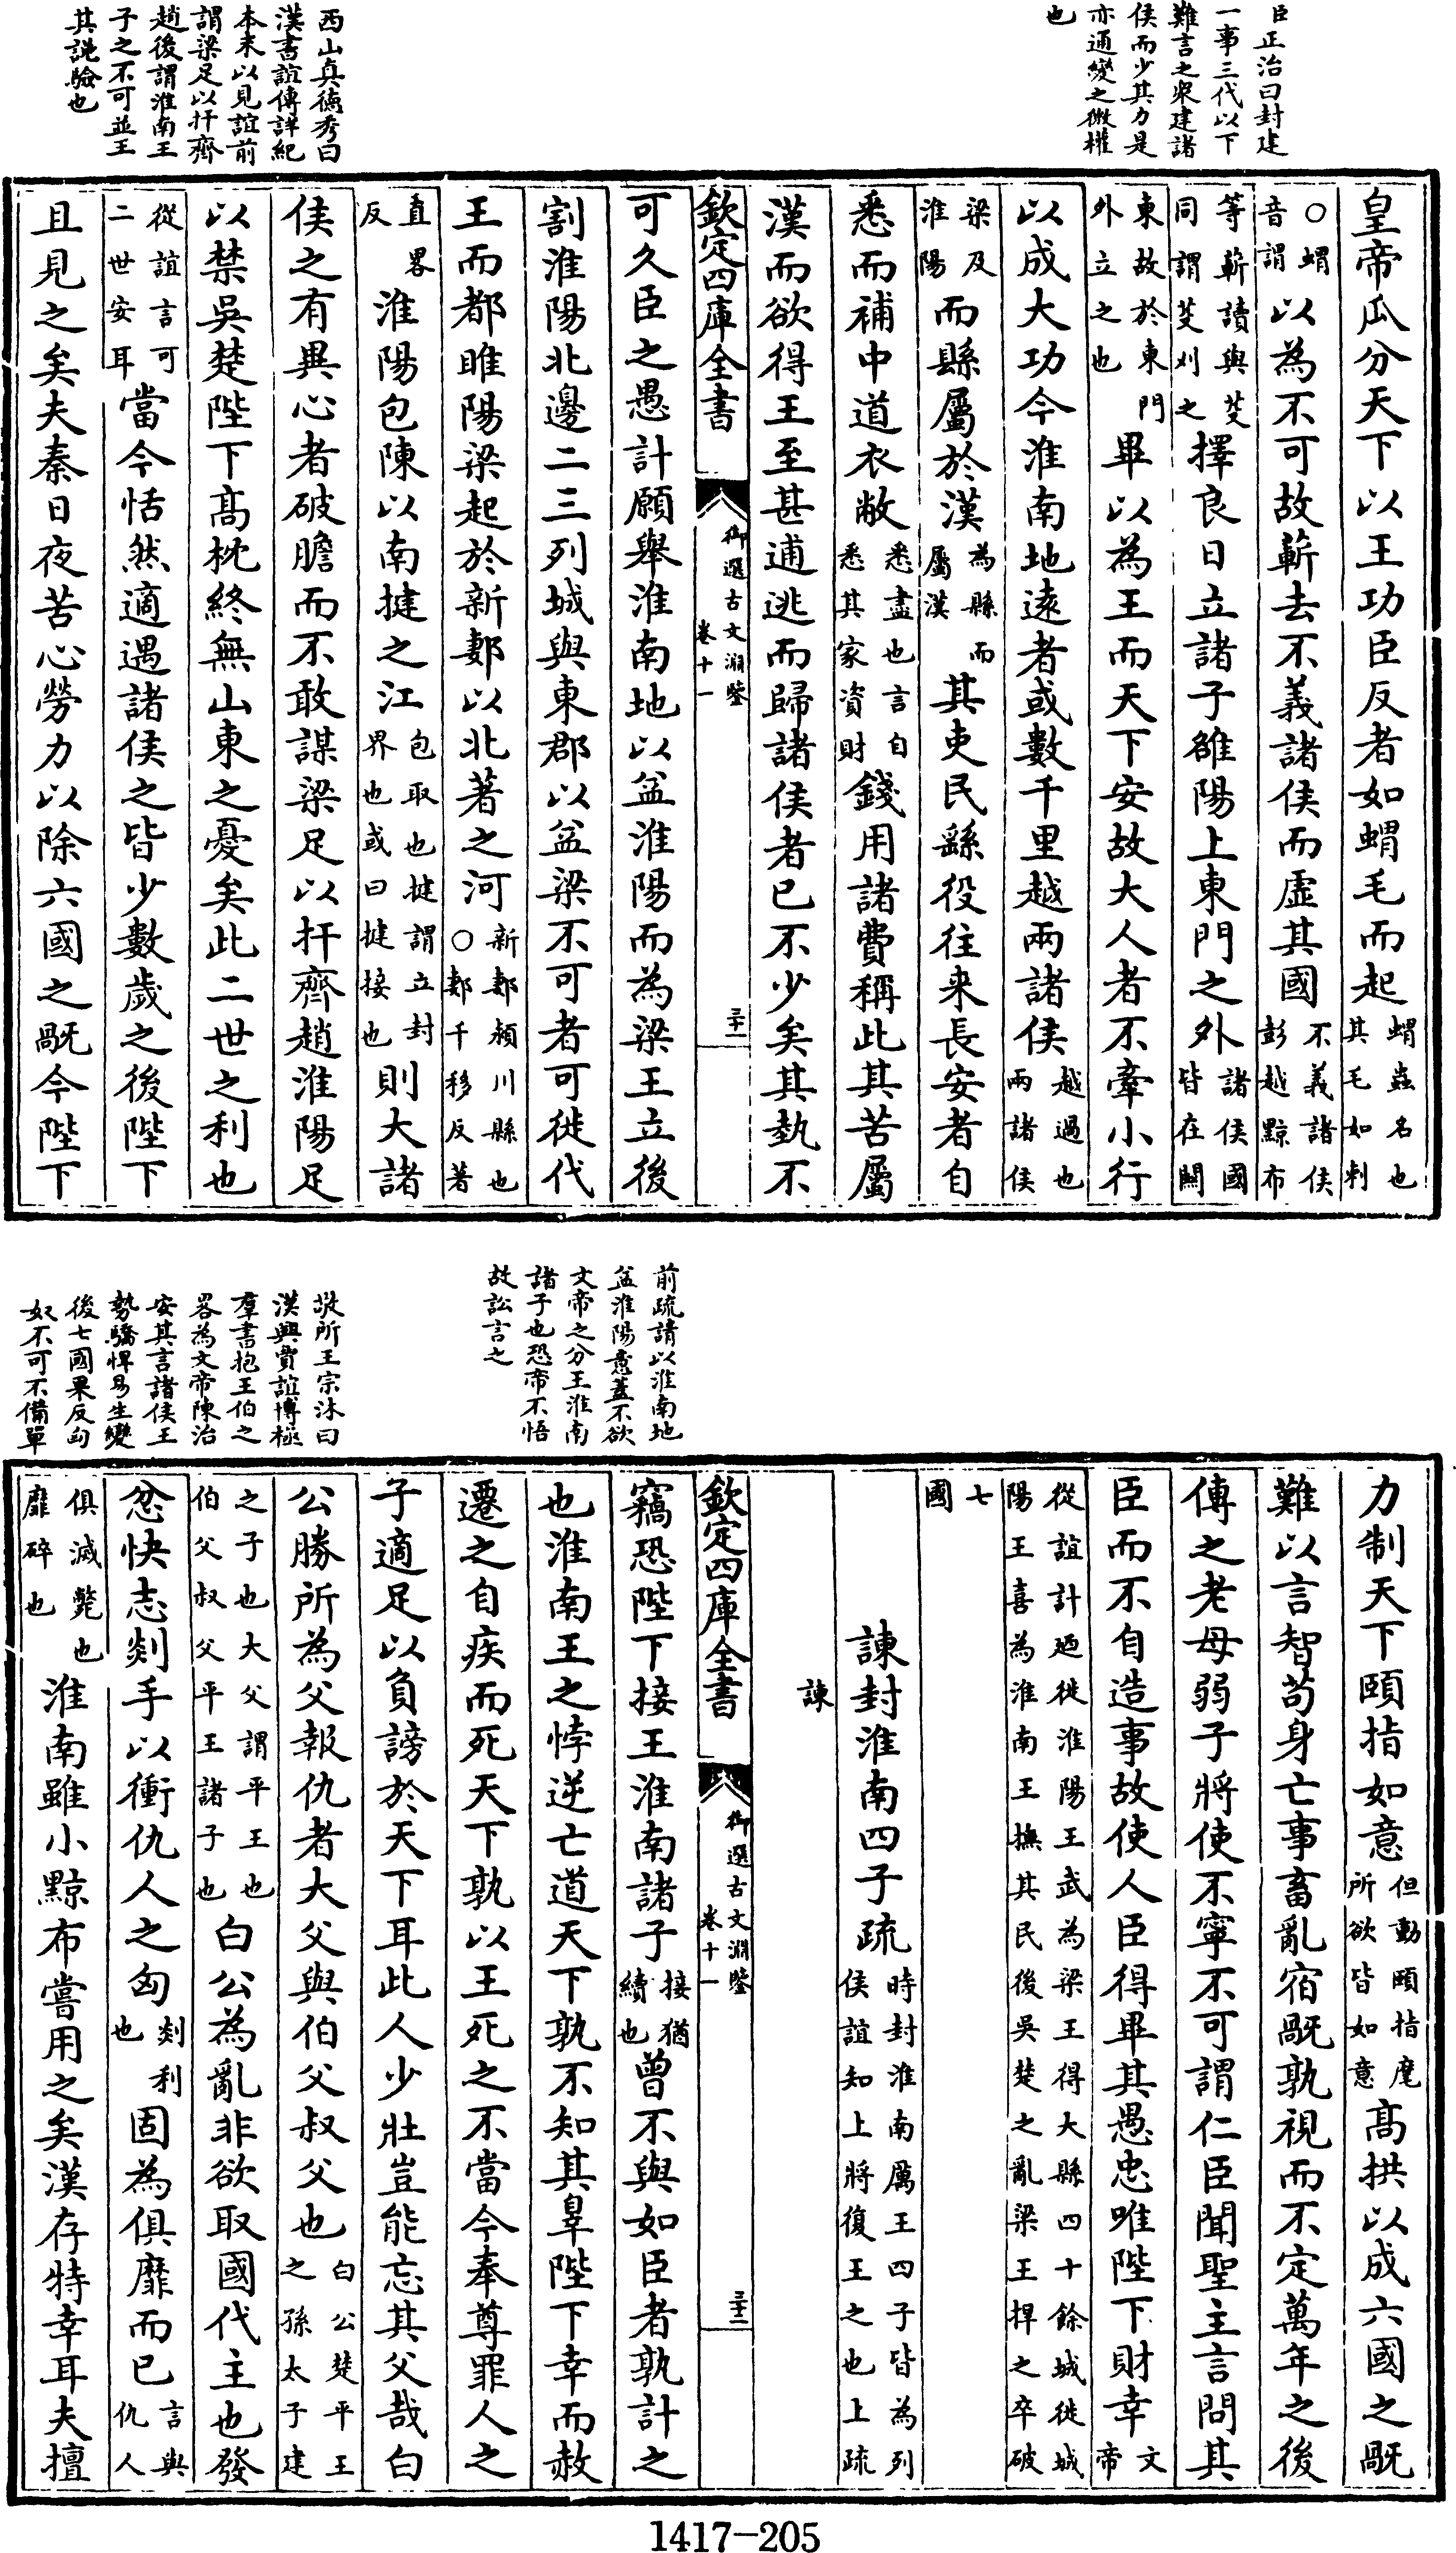 臣正治曰封建
一事三代以下
難言之衆建諸
侯而少其力是
亦通變之微權
也
西山真德秀曰
漢書誼傳詳紀
本末以見誼前
謂梁足以扞齊
趙後謂淮南王
子之不可並王
其説驗也
皇帝瓜分天下以王功臣反者如蝟毛而起蝟蟲名也其毛如刺
○蝟音謂以為不可故蘄去不義諸侯而虛其國不義諸侯彭越黥布
等蘄讀與芟同謂芟刈之擇良日立諸子雒陽上東門之外諸侯國皆在關
東故於東門外立之也畢以為王而天下安故大人者不牽小行
以成大功今淮南地遠者或數千里越兩諸侯越過也兩諸侯
梁及淮陽而縣屬於漢為縣而屬漢其吏民繇役往来長安者自
悉而補中道衣敝悉盡也言自悉其家資財錢用諸費稱此其苦屬
漢而欲得王至甚逋逃而歸諸侯者已不少矣其埶不
欽定四庫全書
御選古文淵鑒
卷十一
三十一
可久臣之愚計願舉淮南地以益淮陽而為梁王立後
割淮陽北邊二三列城與東郡以益梁不可者可徙代
王而都睢陽梁起於新郪以北著之河新郪潁川縣也○郪千移反著
直畧反淮陽包陳以南揵之江包取也揵謂立封界也或曰揵接也則大諸
侯之有異心者破膽而不敢謀梁足以扞齊趙淮陽足
以禁吳楚陛下髙枕終無山東之憂矣此二世之利也
從誼言可二世安耳當今恬然適遇諸侯之皆少數歲之後陛下
且見之矣夫秦日夜苦心勞力以除六國之旤今陛下
前疏請以淮南地
益淮陽意蓋不欲
文帝之分王淮南
諸子也恐帝不悟
故訟言之
敬所王宗沐曰
漢興賈誼博極
羣書抱王伯之
畧為文帝陳治
安其言諸侯王
勢驕悍易生變
後七國果反匈
奴不可不備單
力制天下頤指如意但動頤指麾所欲皆如意髙拱以成六國之旤
難以言智苟身亡事畜亂宿旤孰視而不定萬年之後
傳之老母弱子將使不寧不可謂仁臣聞聖主言問其
臣而不自造事故使人臣得畢其愚忠唯陛下財幸文帝
從誼計廼徙淮陽王武為梁王得大縣四十餘城徙城陽王喜為淮南王撫其民後吳楚之亂梁王捍之卒破
七國
諫封淮南四子疏時封淮南厲王四子皆為列侯誼知上將復王之也上疏
諫
欽定四庫全書
御選古文淵鑒
卷十一
三十二
竊恐陛下接王淮南諸子接猶續也曾不與如臣者孰計之
也淮南王之悖逆亡道天下孰不知其辠陛下幸而赦
遷之自疾而死天下孰以王死之不當今奉尊罪人之
子適足以負謗於天下耳此人少壯豈能忘其父哉白
公勝所為父報仇者大父與伯父叔父也白公楚平王之孫太子建
之子也大父謂平王也伯父叔父平王諸子也白公為亂非欲取國代主也發
忿快志剡手以衝仇人之匈剡利也固為俱靡而已言與仇人
俱滅斃也靡碎也淮南雖小黥布嘗用之矣漢存特幸耳夫擅
1417-205